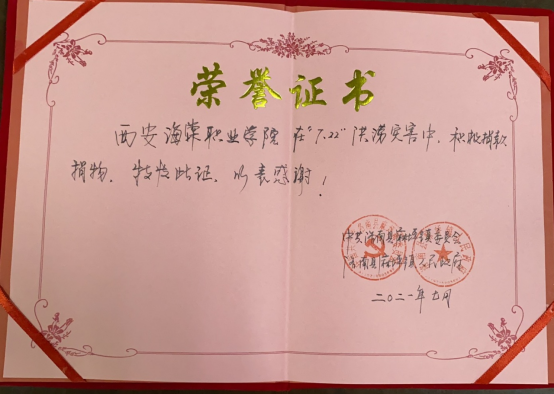 荣誉证书
西安海棠职业学院在"7.22"洪涝灾害中，积极捐款
捐物，特发此证，以表感谢！
中共洛南县麻坪镇委员会
洛南县麻坪镇人民政府
二〇二一年九月